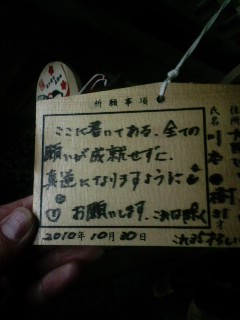 祈願事項
ここに書いてある、全ての
願いが成就せずに、
真逆になりますように
お願いします。これは除く
2010年10月30日
住所
氏名